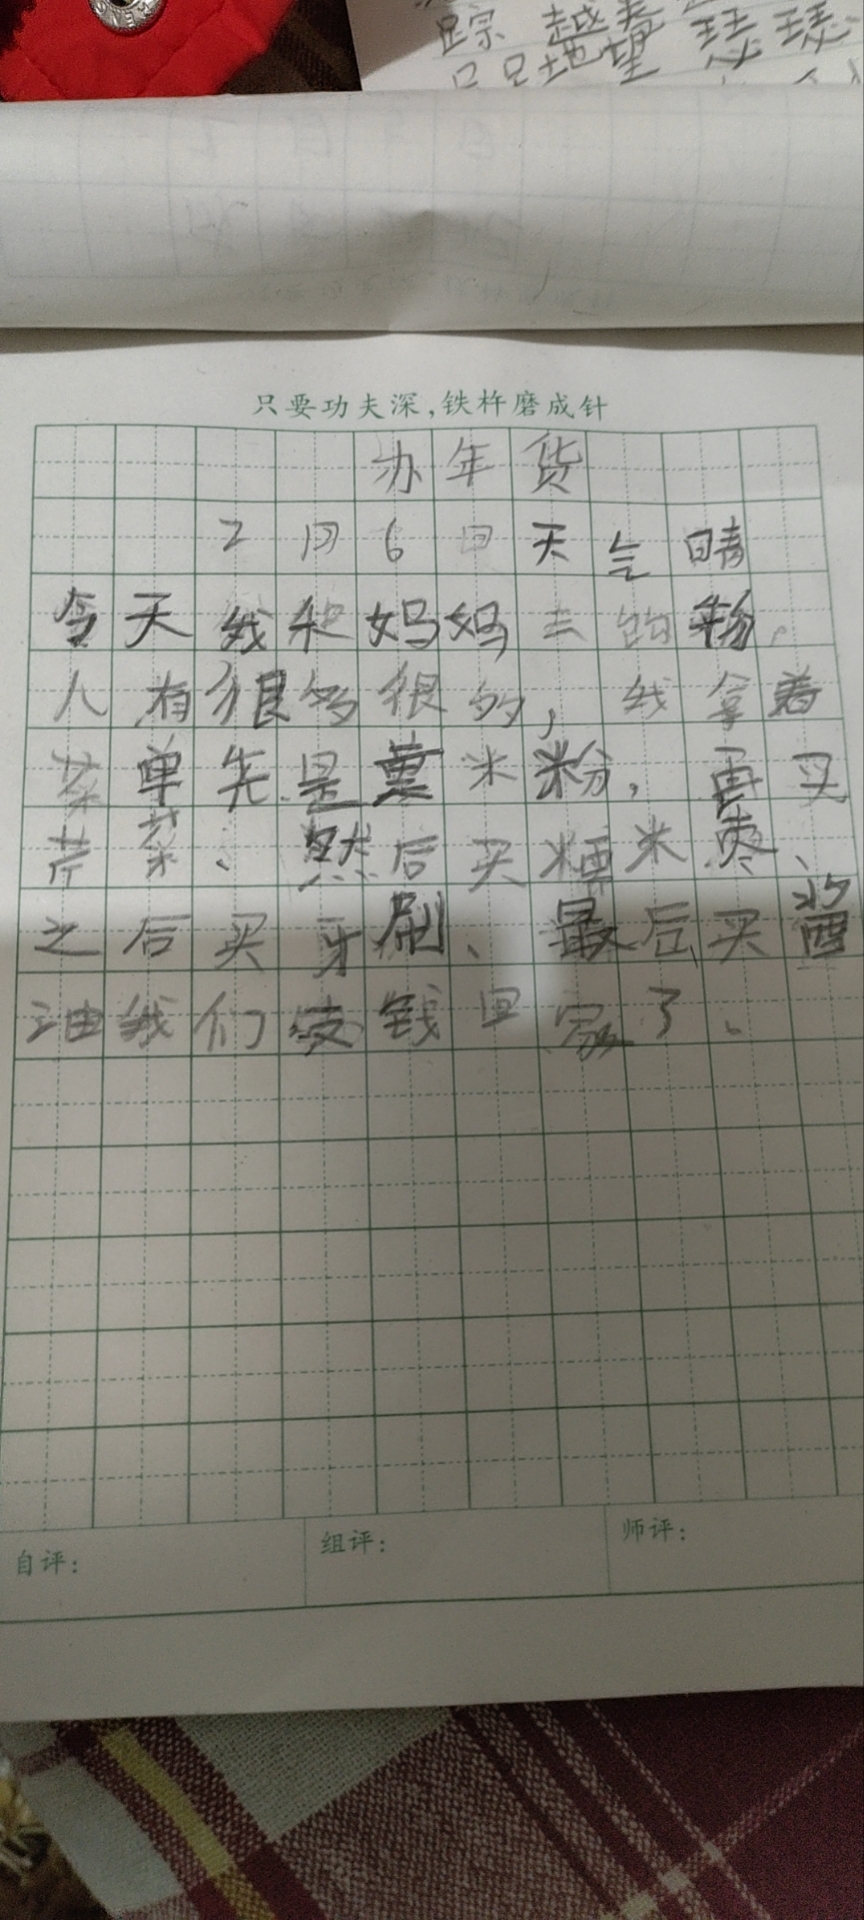 踪 越 走
只要功夫深,铁杵磨成针
办年货
2月6日天气晴
今天我和妈妈去的物。
人有很多很的，我拿着
菜单先是薰米粉，再买
芹菜、然后买糯米枣、
之后买牙刷、最后买酱
油我们支钱回家了。
自评：
组评：
师评：